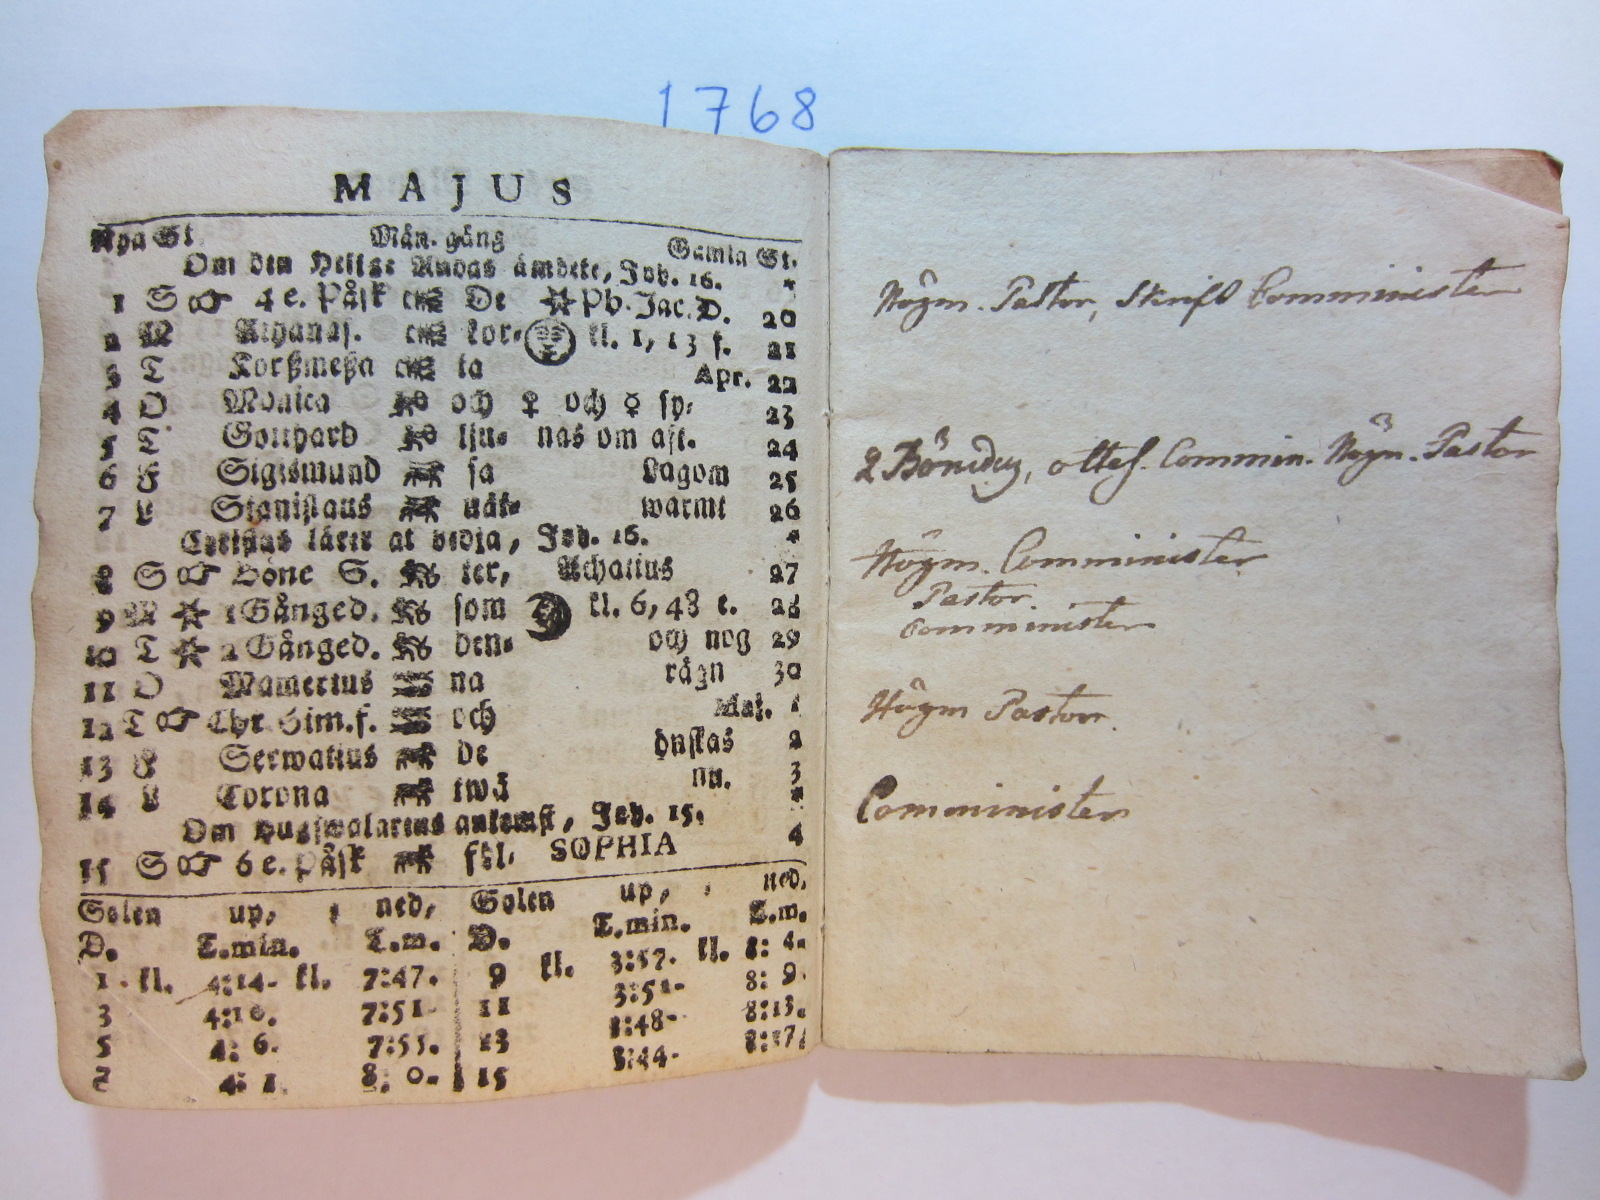 1768
MAJUS
Nya St Mån. gång Gamla St.
Om den Helige Andas ämbete, Joh. 16.
1 S 4 e. Påsk De Ph. Jac. D. 20
2 M Athanas. kor- kl. 1, 13 f. 21
3 T Korßmeßa ta Apr. 22
4 O Monica och ♀ och ☿ sy- 23
5 T Gotthard lju- nas om aft. 24
6 F Sigismund sa Lagom 25
7 L Stanislaus nät- warmt 26
Christus lärer at bedja, Joh. 16.
8 S Böne S. ter, Achatius 27
9 M 1 Gånged. som kl. 6, 48 e. 28
10 T 2 Gånged. den- och nog 29
11 O Mamertus na rägn 30
12 T Chr. Him.f. och Maj. 1
13 F Serwatius de önskas 2
14 L Corona twå nu. 3
Om Hugswalarens ankomst, Joh. 15.
15 S 6 e. Påsk föl. SOPHIA 4
Solen up, ned, Solen up, ned,
D. T.min. T.m. D. T.min. T.m.
1 kl. 4:14. kl. 7:47. 9 kl. 3:57. kl. 8: 4.
3 4:10. 7:51. 11 3:52. 8: 9.
5 4: 6. 7:55. 13 3:48. 8:13.
7 4: 1. 8: 0. 15 3:44. 8:17.
Högm. Pastor, Skrift Comminister
2 Bönedag, ottes. Commin. Högm. Pastor
Högm. Comminister
Pastor.
Comminister
Högm Pastor.
Comminister